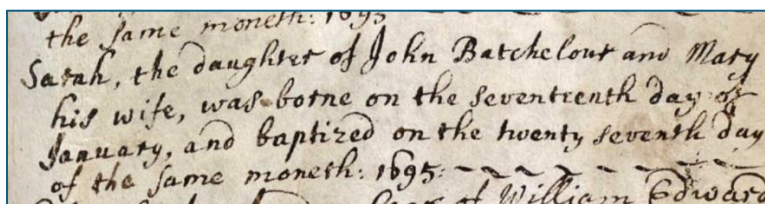 the same moneth: 1695
Sarah, the daughter of John Batchelour and Mary
his wife, was borne on the seventeenth day of
January, and baptized on the twenty seventh day
of the same moneth: 1695:
of William Edward